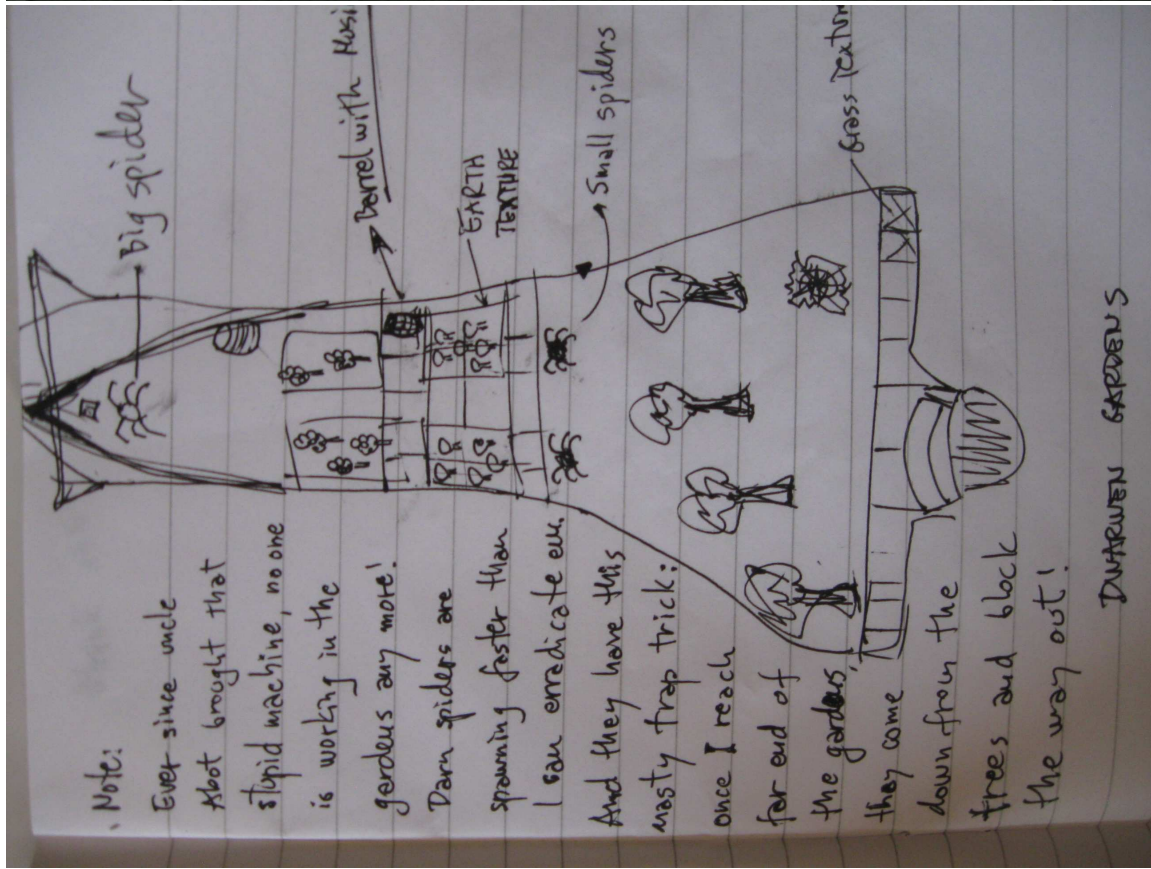 Note:
Ever since uncle
Abot brought that
stupid machine, no one
is working in the
gardens any more!
Darn spiders are
spawning faster than
I can erradicate em.
And they have this
nasty trap trick:
once I reach
far end of
the gardens,
they come
down from the
trees and block
the way out!
Big spider
Barrel with
EARTH
TEXTURE
Small spiders
Grass Textur
DWARVEN GARDENS